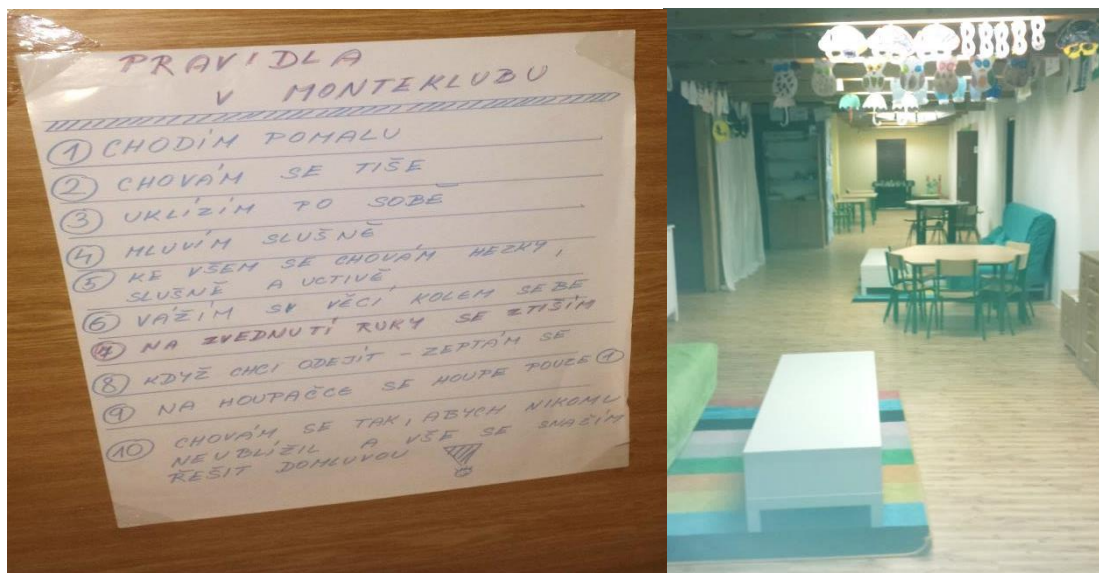 PRAVIDLA
V MONTEKLUBU
1 CHODÍM POMALU
2 CHOVÁM SE TIŠE
3 UKLÍZÍM PO SOBĚ
4 MLUVÍM SLUŠNĚ
5 KE VŠEM SE CHOVÁM HEZKY,
SLUŠNĚ A UCTIVĚ
6 VÁŽÍM SI VĚCÍ KOLEM SEBE
7 NA ZVEDNUTÍ RUKY SE ZTIŠÍM
8 KDYŽ CHCI ODEJÍT – ZEPTÁM SE
9 NA HOUPAČCE SE HOUPE POUZE 1
10 CHOVÁM SE TAK, ABYCH NIKOMU
NEUBLÍŽIL A VŠE SE SNAŽÍM
ŘEŠIT DOMLUVOU !
88888